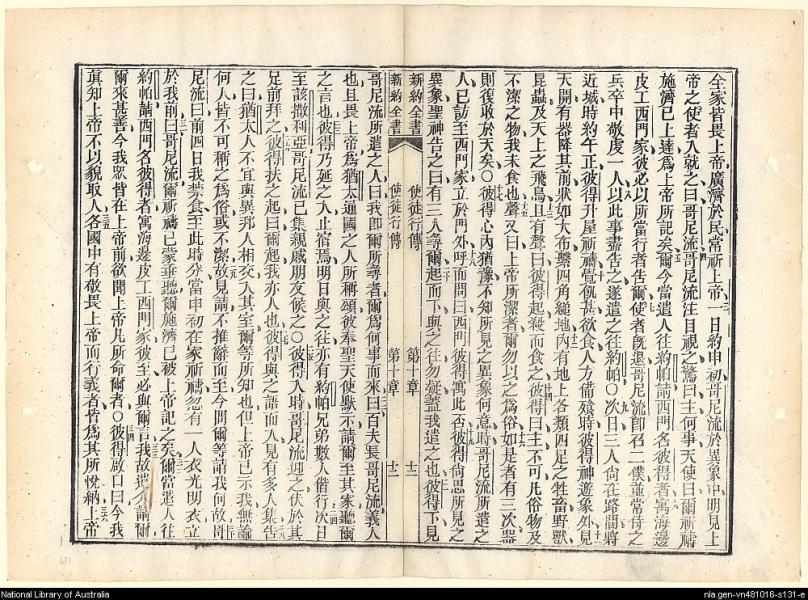 全家皆畏上帝廣濟於民常祈上帝一日約申初哥尼流於異象中明見上
帝之使者入就之曰哥尼流哥尼流注目視之驚曰主何事天使曰爾祈禱
施濟已上達爲上帝所記矣爾今當遣人往約帕請西門名彼得者寓海邊
皮工西門家彼必以所當行者告爾使者旣退哥尼流卽召二僕並常侍之
兵卒中敬虔一人以此事盡告之遂遣之往約帕○次日三人尙在路間將
近城時約午正彼得升屋祈禱覺飢甚欲食人方備餐時彼得神遊象外見
天開有器降其前狀如大布繫四角縋地內有地上各類四足之牲畜野獸
昆蟲及天上之飛鳥且有聲曰彼得起殺而食之彼得曰主不可凡俗物及
不潔之物我未食也聲又曰上帝所潔者爾勿以之爲俗如是者有三次器
則復收於天矣○彼得心內猶豫不知所見之異象何意時哥尼流所遣之
人已訪至西門家立於門外呼而問曰西門彼得寓此否彼得尙思所見之
異象聖神告之曰有三人等爾起而下與之往勿疑蓋我遣之也彼得下見
新約全書 使徒行傳 第十章 十二
新約全書 使徒行傳 第十章 十二
哥尼流所遣之人曰我卽爾所尋者爾爲何事而來曰百夫長哥尼流義人
也且畏上帝爲猶太通國之人所稱頌彼奉聖天使默示請爾至其家聽爾
之言也彼得乃延之入止宿焉明日與之往亦有約帕兄弟數人偕行次日
至該撒利亞哥尼流已集親戚朋友候之○彼得入時哥尼流迎之伏於其
足前拜之彼得扶之起曰爾起我亦人也彼得與之語而入見有多人集告
之曰猶太人不宜與異邦人相交入其室爾等所知也但上帝已示我無論
何人皆不可稱之爲俗或不潔故見請不推辭而至今問爾等請我何故哥
尼流曰前四日我禁食至此時分當申初在家祈禱忽有一人衣光明衣立
於我前曰哥尼流爾祈禱已蒙垂聽爾施濟已被上帝記之矣爾當遣人往
約帕請西門名彼得者寓海邊皮工西門家彼至必與爾言我故遣人請爾
爾來甚善今我眾皆在上帝前欲聞上帝凡所命爾者○彼得啟口曰今我
眞知上帝不以貌取人各國中有敬畏上帝而行義者皆爲其所悅納上帝
National Library of Australia
nla.gen-vn481016-s131-e